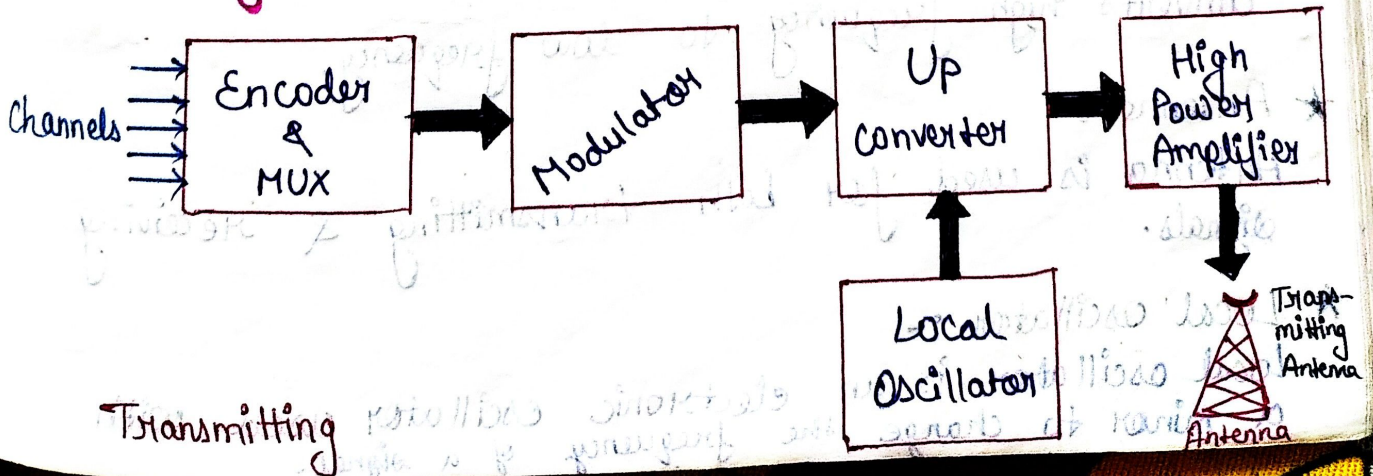 Channels
Encoder
&
MUX
Modulator
Up
Converter
High
Power
Amplifier
Local
Oscillator
Trans-
mitting
Antenna
Antenna
Transmitting